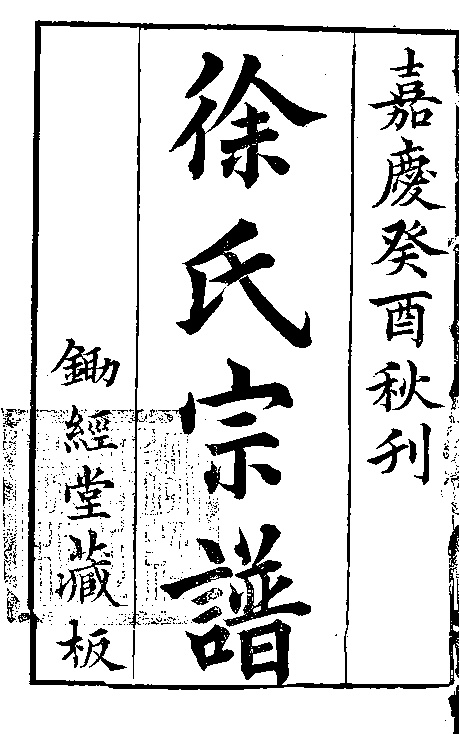 嘉慶癸酉秋刋
徐氏宗譜
鋤經堂藏板